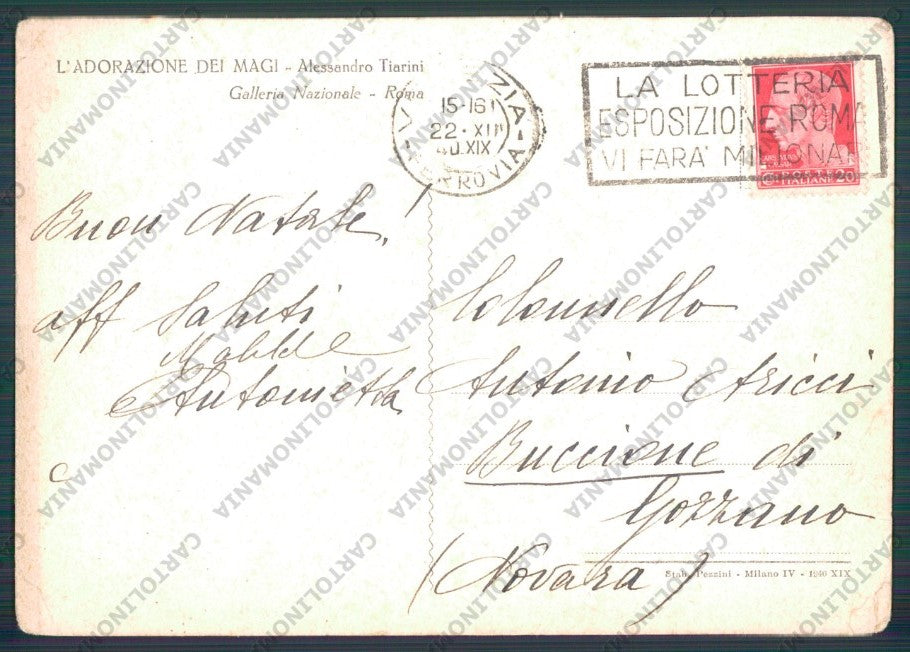 L'ADORAZIONE DEI MAGI - Alessandro Tiarini
Galleria Nazionale - Roma
ZIA
15-16
22·XII
40.XIX
FERROVIA
LA LOTTERIA
ESPOSIZIONE ROMA
VI FARA' MILIONARI
ITALIANE 20
Buon Natale!
aff Saluti
Antonietta
Colonnello
Antonio Aricci
Buccione di
Gozzano
(Novara)
Stab. Pezzini - Milano IV - 1240 XIX
CARTOLINOMANIA